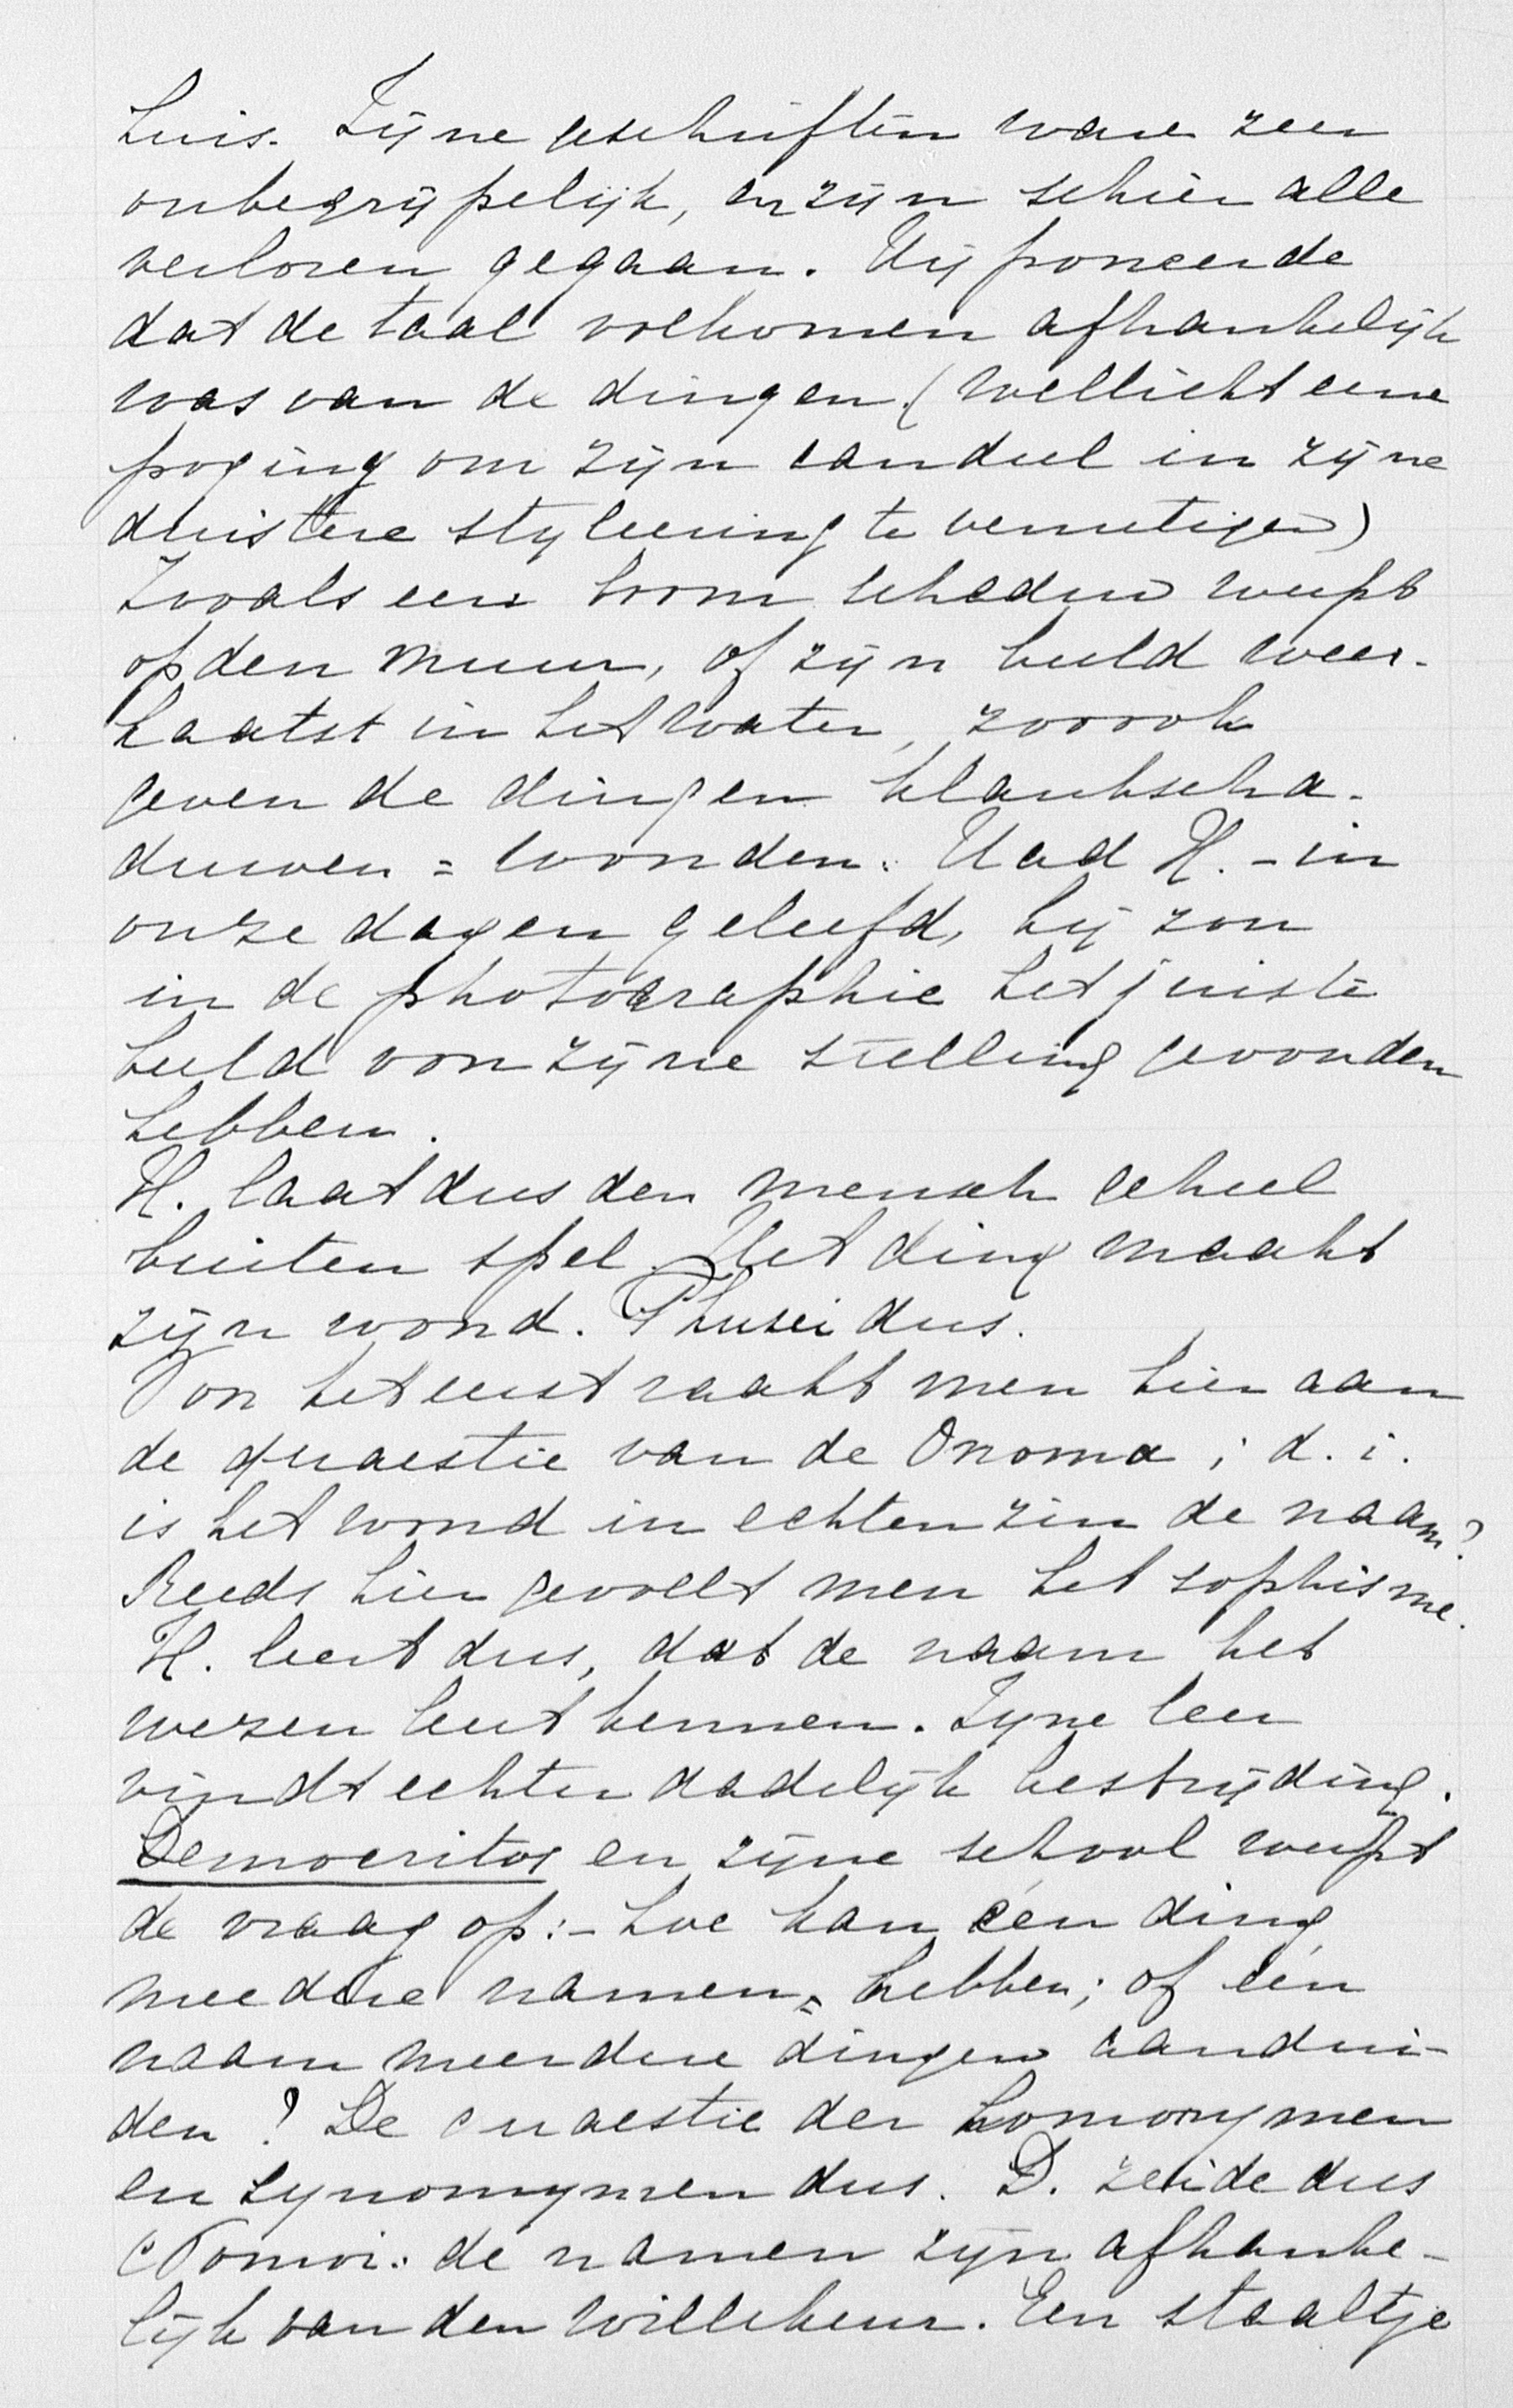 huis. Zijne geschriften ware zeer
onbegrijpelijk, en zijn schier alle
verloren gegaan. Hij poneerde
dat de taal volkomen afhankelijk
was van de dingen. (Wellicht eene
poging om zijn aandeel in zijne
duistere styleering te vernietigen)
Zooals een boom schaduw werpt
op den muur, of zijn beeld weer-
kaatst in het water, zooook
geven de dingen klankscha-
duwen = woorden. Had H. - in
onze dagen geleefd, hij zou
in de photographie het juiste
beeld van zijne stelling gevonden
hebben.
H. laat dus den mensch geheel
buiten spel. Het ding maakt
zijn woord. Phusei dus.
Voor het eerst raakt men hier aan
de quaestie van de Onoma; d. i.
is het woord in echten zin de naam?
Reeds hier gevoelt men het sophisme.
H. leert dus, dat de naam het
wezen leert kennen. Zyne leer
vindt echter dadelijk bestrijding.
Democritos en zijne school werpt
de vraag op: - hoe kan één ding
meedere namen hebben; of één
naam meerdere dingen aandui-
den? De quaestie der homonymen
en synonymen dus. D. zeide dus
Nomoi: de namen zijn afhanke-
lijk van den willekeur. Een staaltje